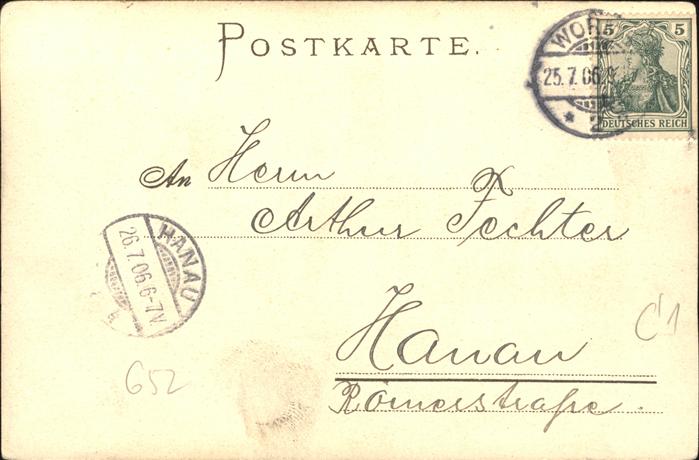 POSTKARTE.
5 5
DEUTSCHES REICH
25.7.06
An Herrn
Arthur Fechter
HANAU
26.7.06.6-7V.
Hanau
Römerstraße.
C1
652